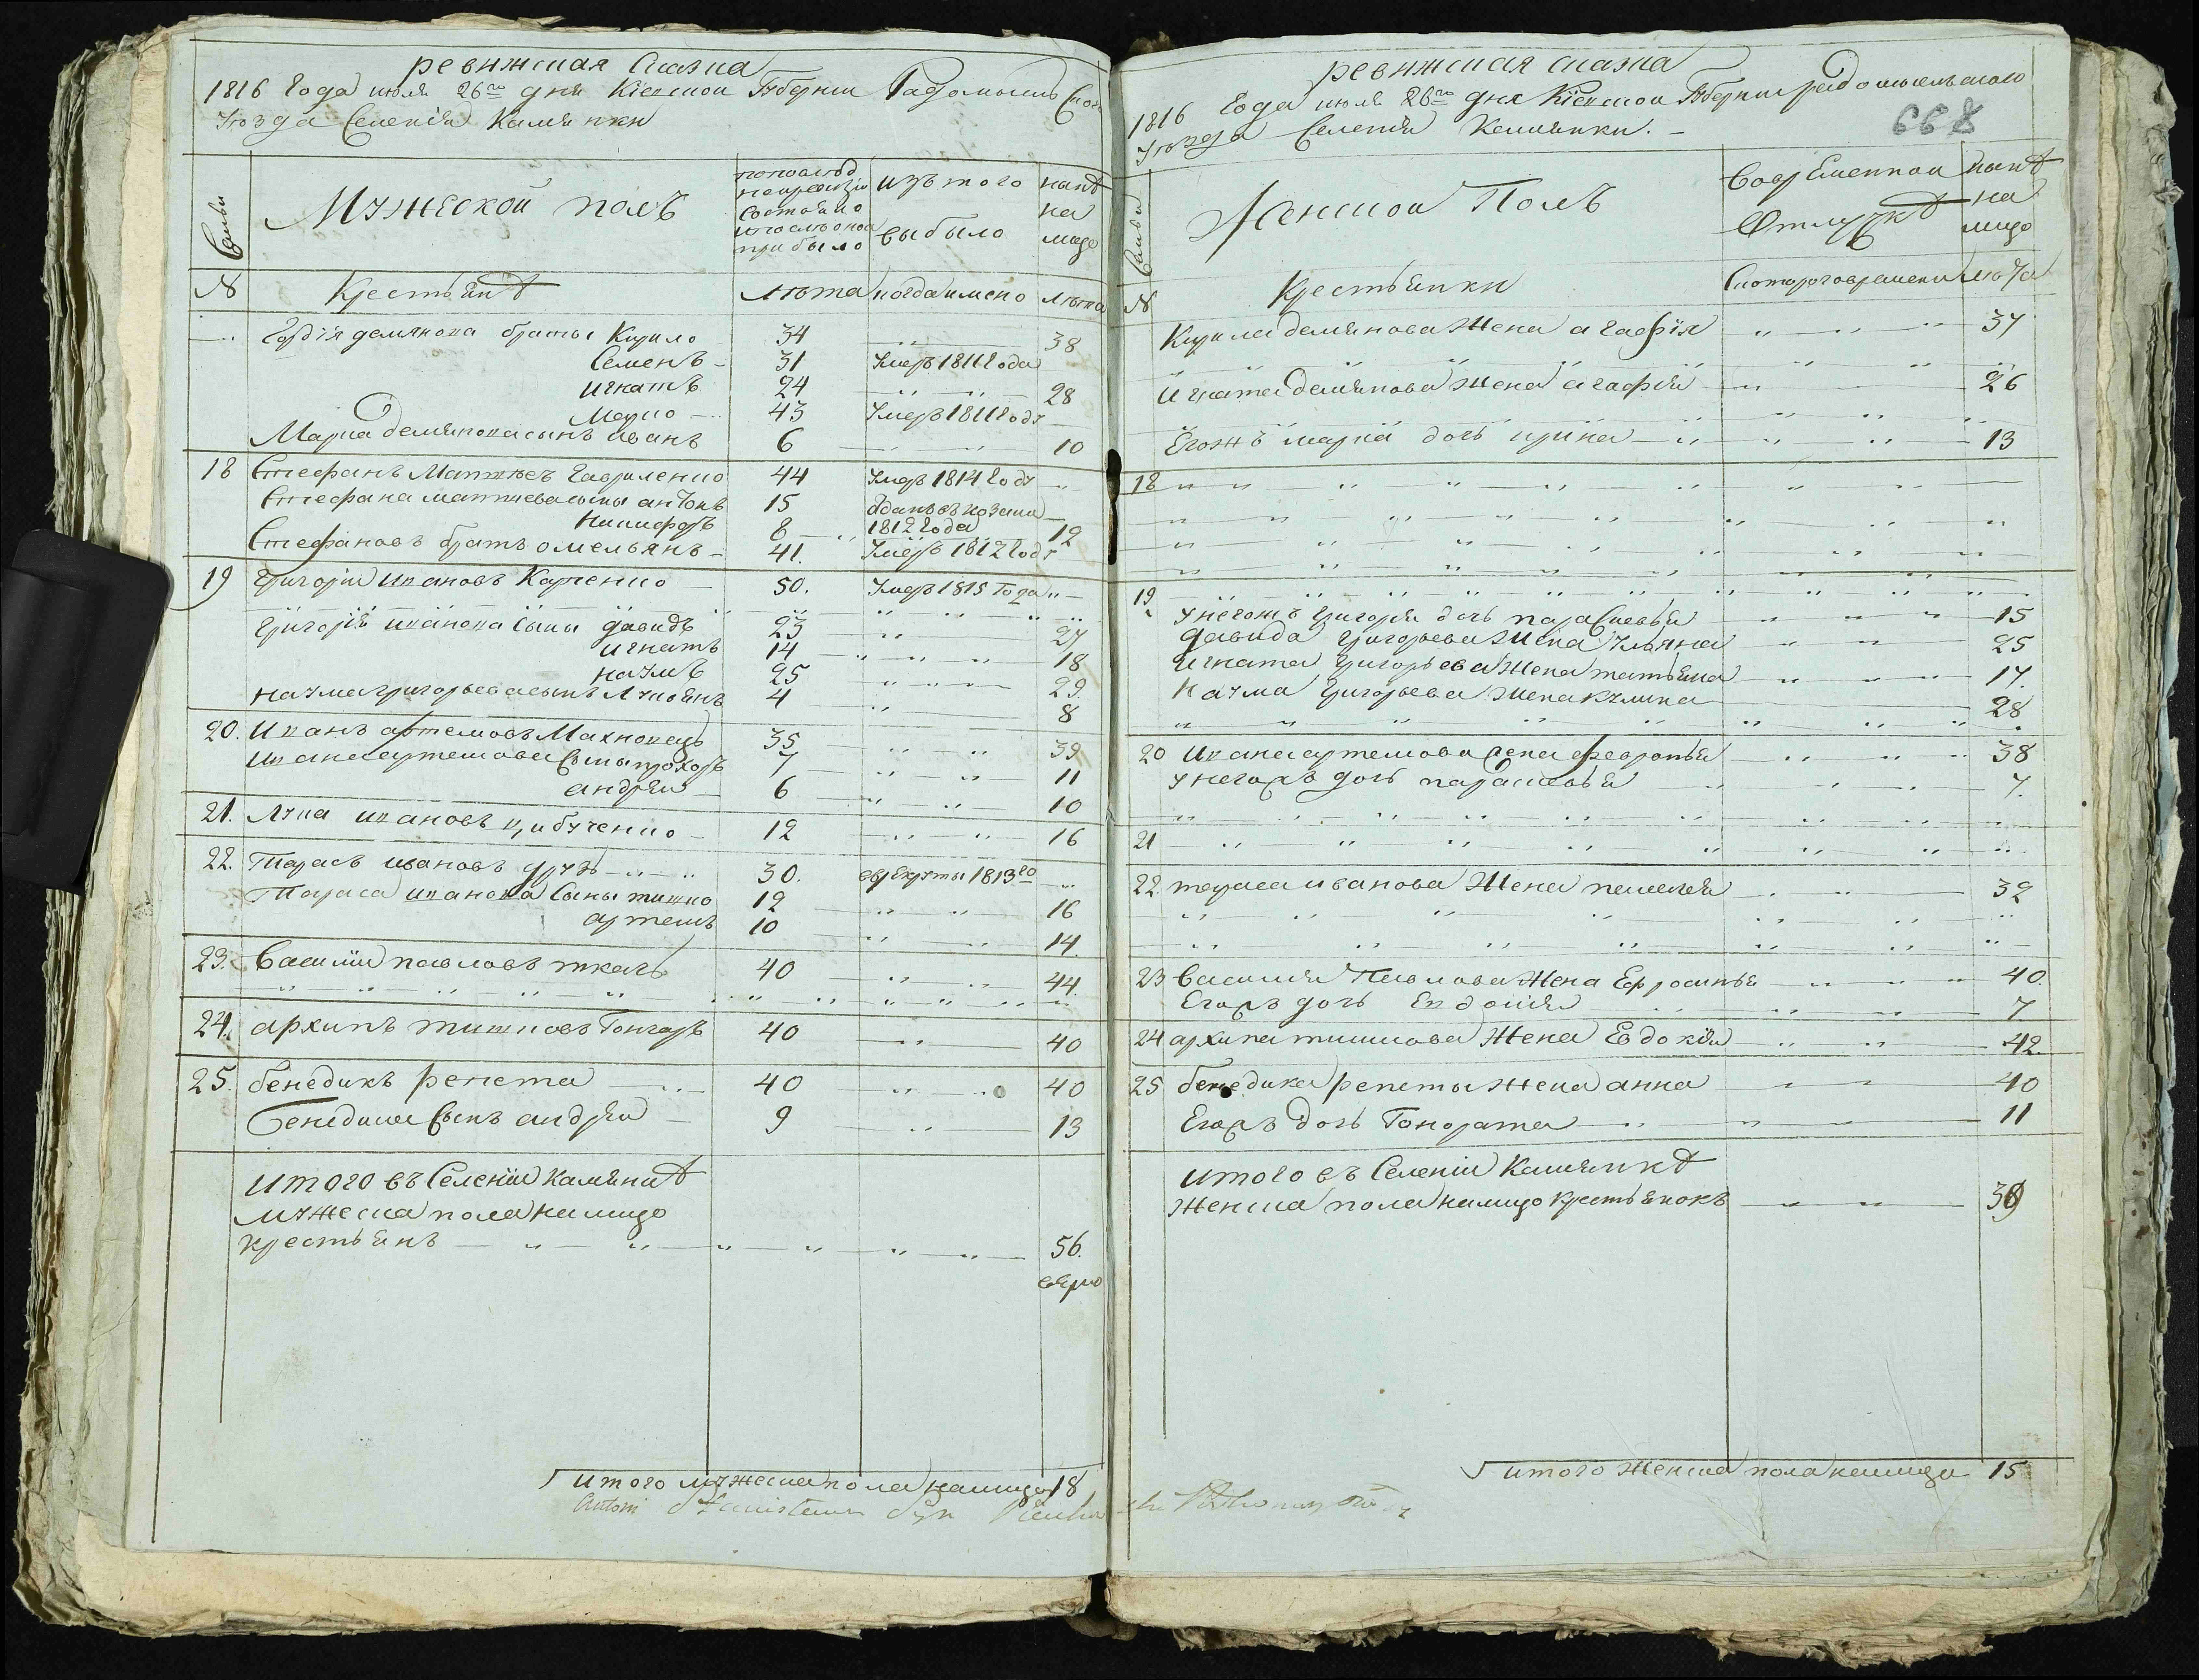 ревижская сказка
1816 Года июля 26го дня Кіевской Губерніи Радомысльского
Уезда Селенія Камянки
Семьи
Мужеской полъ
по последней ревизіи состояло и после оной прибыло
изъ того выбыло
ныне на лицо
№
Крестьяне
Лета
когда имено
лета
Гордія демянова братьи Кирило 34 38
Семенъ 31 Умеръ 1811 Года
Игнатъ 24 28
Марко 43 Умеръ 1811 Году
Марка демянова сынъ иванъ 6 10
18 Стефанъ Матвеевъ Гавриленко 44 Умеръ 1814 Году
Стефана матвиева сыны антонъ 15 отданъ въ козаки
Никифоръ 8 1812 Года 12
Стефановъ братъ омельянъ 41. Умеръ 1812 Году
19 Григорій Ивановъ Карпенко 50. Умеръ 1815 Года
Григорія иванова Сыны давидъ 23 27
игнатъ 14 18
наумъ 25 29.
наума григорьева сынъ Лукьянъ 4 8
20. Иванъ артемовъ Махновецъ 35 39
Ивана артемова Сыны прохоръ 7 11
андрей 6 10
21. Лука ивановъ цибученко 12 16
22. Тарасъ ивановъ друзь 30. в рекруты 1813го
Тараса иванова Сыны тишко 12 16
артемъ 10 14.
23. Василій павловъ ткачъ 40 44.
24. архипъ тишковъ Гончаръ 40 40
25. бенедикъ репета 40 40
бенедика Сынъ андрей 9 13
итого въ Селеніи Камянке
мужеска пола налицо
крестьянъ 56.
верно
итого мужеска пола налицо 18
Antoni Stanislawa Syn
ревижская сказка
1816 Года июля 26го дня Кіевской Губерніи радомысльского
Уезда Селенія Камянки.
668
Семьи
Женской Полъ
Во временной Отлучке
ныне на лицо
№
Крестьянки
С которого времени
лета
Кирила демянова Жена агафія 37
Игната демянова Жена агафія 26
Егожъ марка дочь ирина 13
18
19
У негожъ Григорія дочь параскевья 15
давида григорьева Жена Ульяна 25
игната григорьева Жена татьяна 17.
наума григорьева жена кулина 28
20 Ивана артемова жена февронья 38
У негожъ дочь параскевья 7.
21
22 тараса иванова Жена пелагея 32
23 василія Павлова Жена Ефросинья 40.
Егожъ дочь Евдокія 7
24 архипа тишкова Жена Евдокія 42.
25 бенедика репеты жена анна 40
Егожъ дочь Гонората 11
итого въ Селеніи Камянке
женска пола налицо крестьянокъ 39
итого женска пола налицо 15